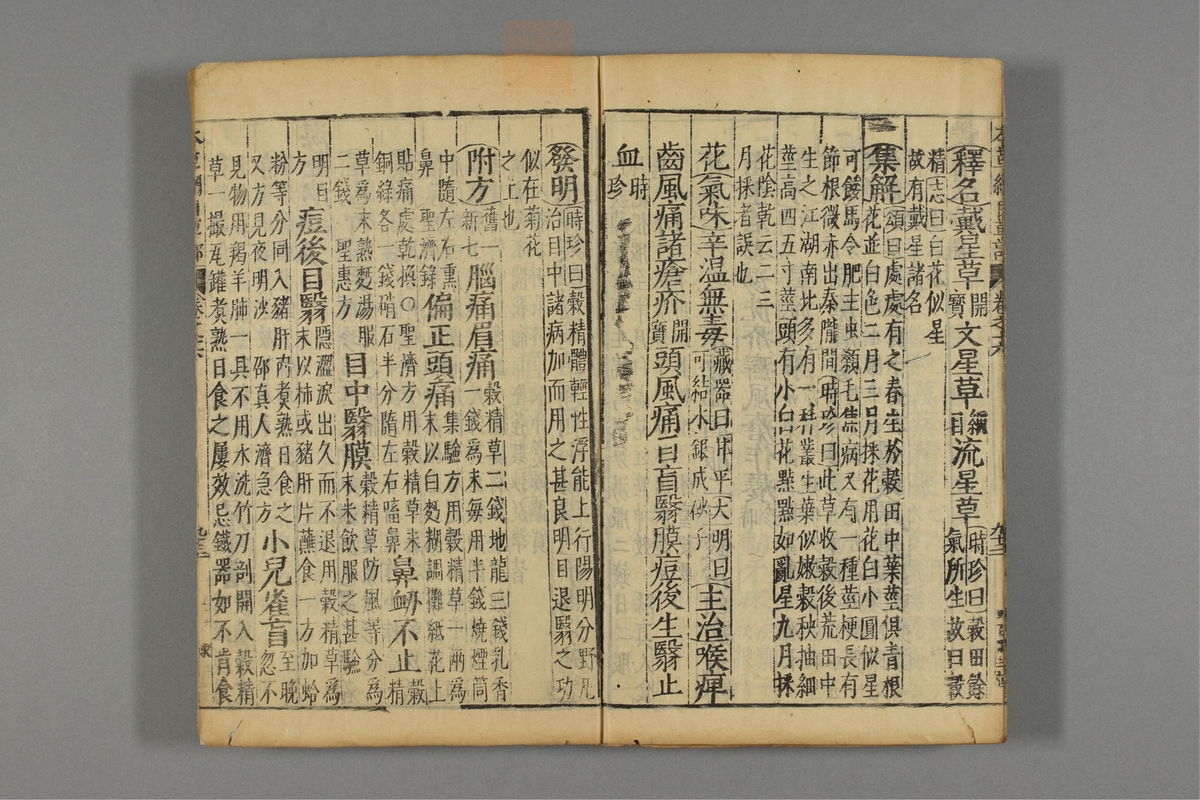 釋名戴星草開寶文星草綱目流星草時珍曰穀田餘氣所生故曰穀
精志曰白花似星
故有戴星諸名
集解頌曰處處有之春生於穀田中葉莖俱青根
花並白色二月三月採花用花白小圓似星
可餧馬令肥主虫顙毛焦病又有一種莖梗長有
節根微赤出秦隴間時珍曰此草收穀後荒田中
生之江湖南北多有一科叢生葉似嫩穀秧抽細
莖高四五寸莖頭有小白花點點如亂星九月採
花陰乾云二三
月採者誤也
花氣味辛溫無毒藏器曰甘平大明曰可結水銀成砂子主治喉痺
齒風痛諸瘡疥開寶頭風痛目盲瞖膜痘後生瞖止
血時珍
發明時珍曰穀精體輕性浮能上行陽明分野凡
治目中諸病加而用之甚良明目退瞖之功
似在菊花
之上也
附方舊一新七腦痛眉痛穀精草二錢地龍三錢乳香
一錢為末每用半錢燒煙筒
中隨左右熏
鼻聖濟錄偏正頭痛集驗方用穀精草一兩為
末以白麪糊調攤紙花上
貼痛處乾換○聖濟方用穀精草末
銅綠各一錢硝石半分隨左右㗜鼻鼻衂不止穀精
草為末熟麪湯服
二錢聖惠方目中瞖膜穀精草防風等分為
末米飲服之甚驗
明目
方痘後目瞖隱澀淚出久而不退用穀精草為
末以柿或豬肝片蘸食一方加蛤
粉等分同入豬肝內煮熟日食之
又方見夜明沙邵真人濟急方小兒雀盲至晚
忽不
見物用羯羊肺一具不用水洗竹刀剖開入穀精
草一撮瓦罐煮熟日食之屢效忌鐵器如不肯食